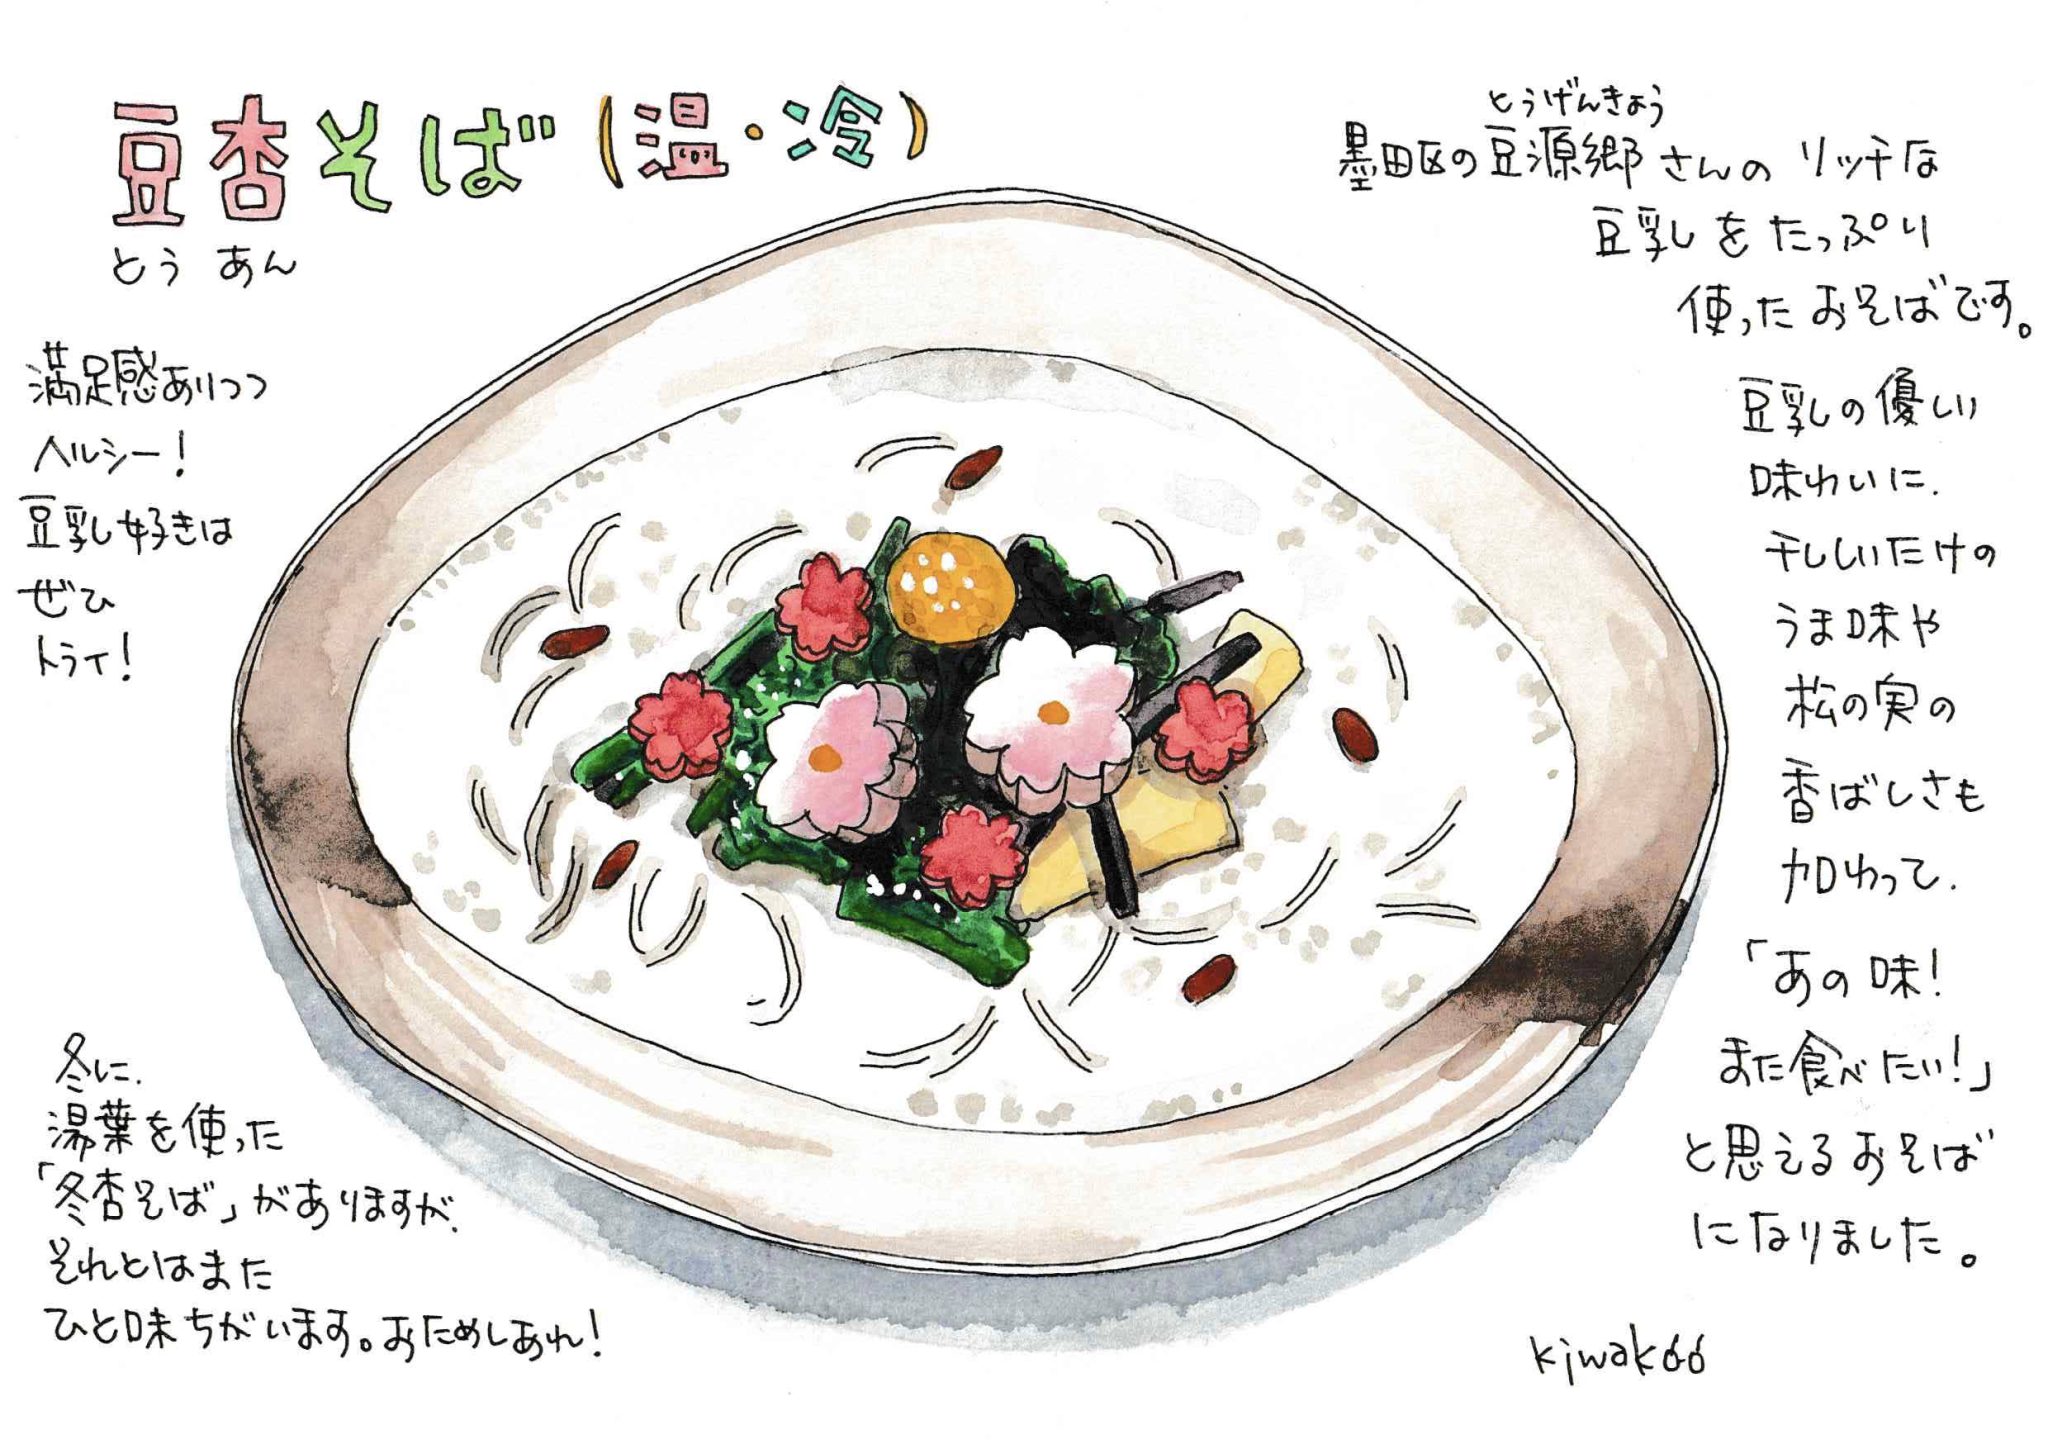 豆杏そば(温・冷)
とうあん
とうげんきょう
墨田区の豆源郷さんのリッチな
豆乳をたっぷり
使ったおそばです。
豆乳の優しい
味わいに、
干ししいたけの
うま味や
松の実の
香ばしさも
加わって、
「あの味!
また食べたい!」
と思えるおそば
になりました。
満足感ありつつ
ヘルシー!
豆乳好きは
ぜひ
トライ!
冬に、
湯葉を使った
「冬杏そば」がありますが、
それとはまた
ひと味ちがいます。おためしあれ!
kiwakoo